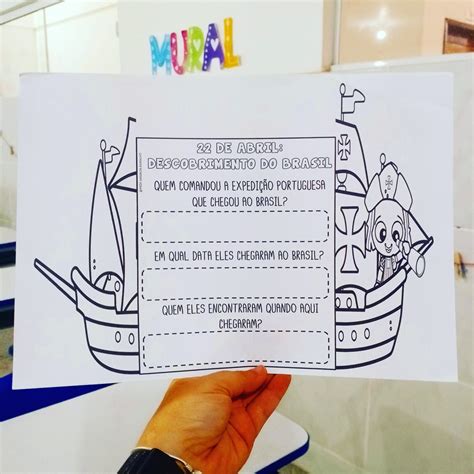 MURAL
22 DE ABRIL:
DESCOBRIMENTO DO BRASIL
QUEM COMANDOU A EXPEDIÇÃO PORTUGUESA
QUE CHEGOU AO BRASIL?
EM QUAL DATA ELES CHEGARAM AO BRASIL?
QUEM ELES ENCONTRARAM QUANDO AQUI
CHEGARAM?